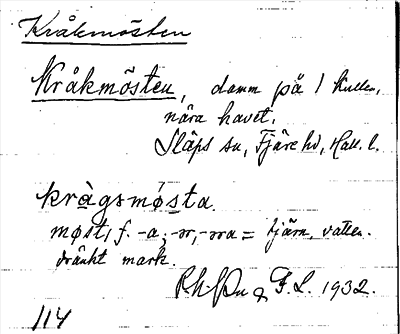 Kråkmösten
Kråkmösten, damm på 1 Kullen,
nära havet,
Släps sn, Fjäre hd, Hall. l.
kràgsmøsta.
møst, f. -a; -ər, -əra = tjärn, vatten-
dränkt mark.
F. L. 1932.
114